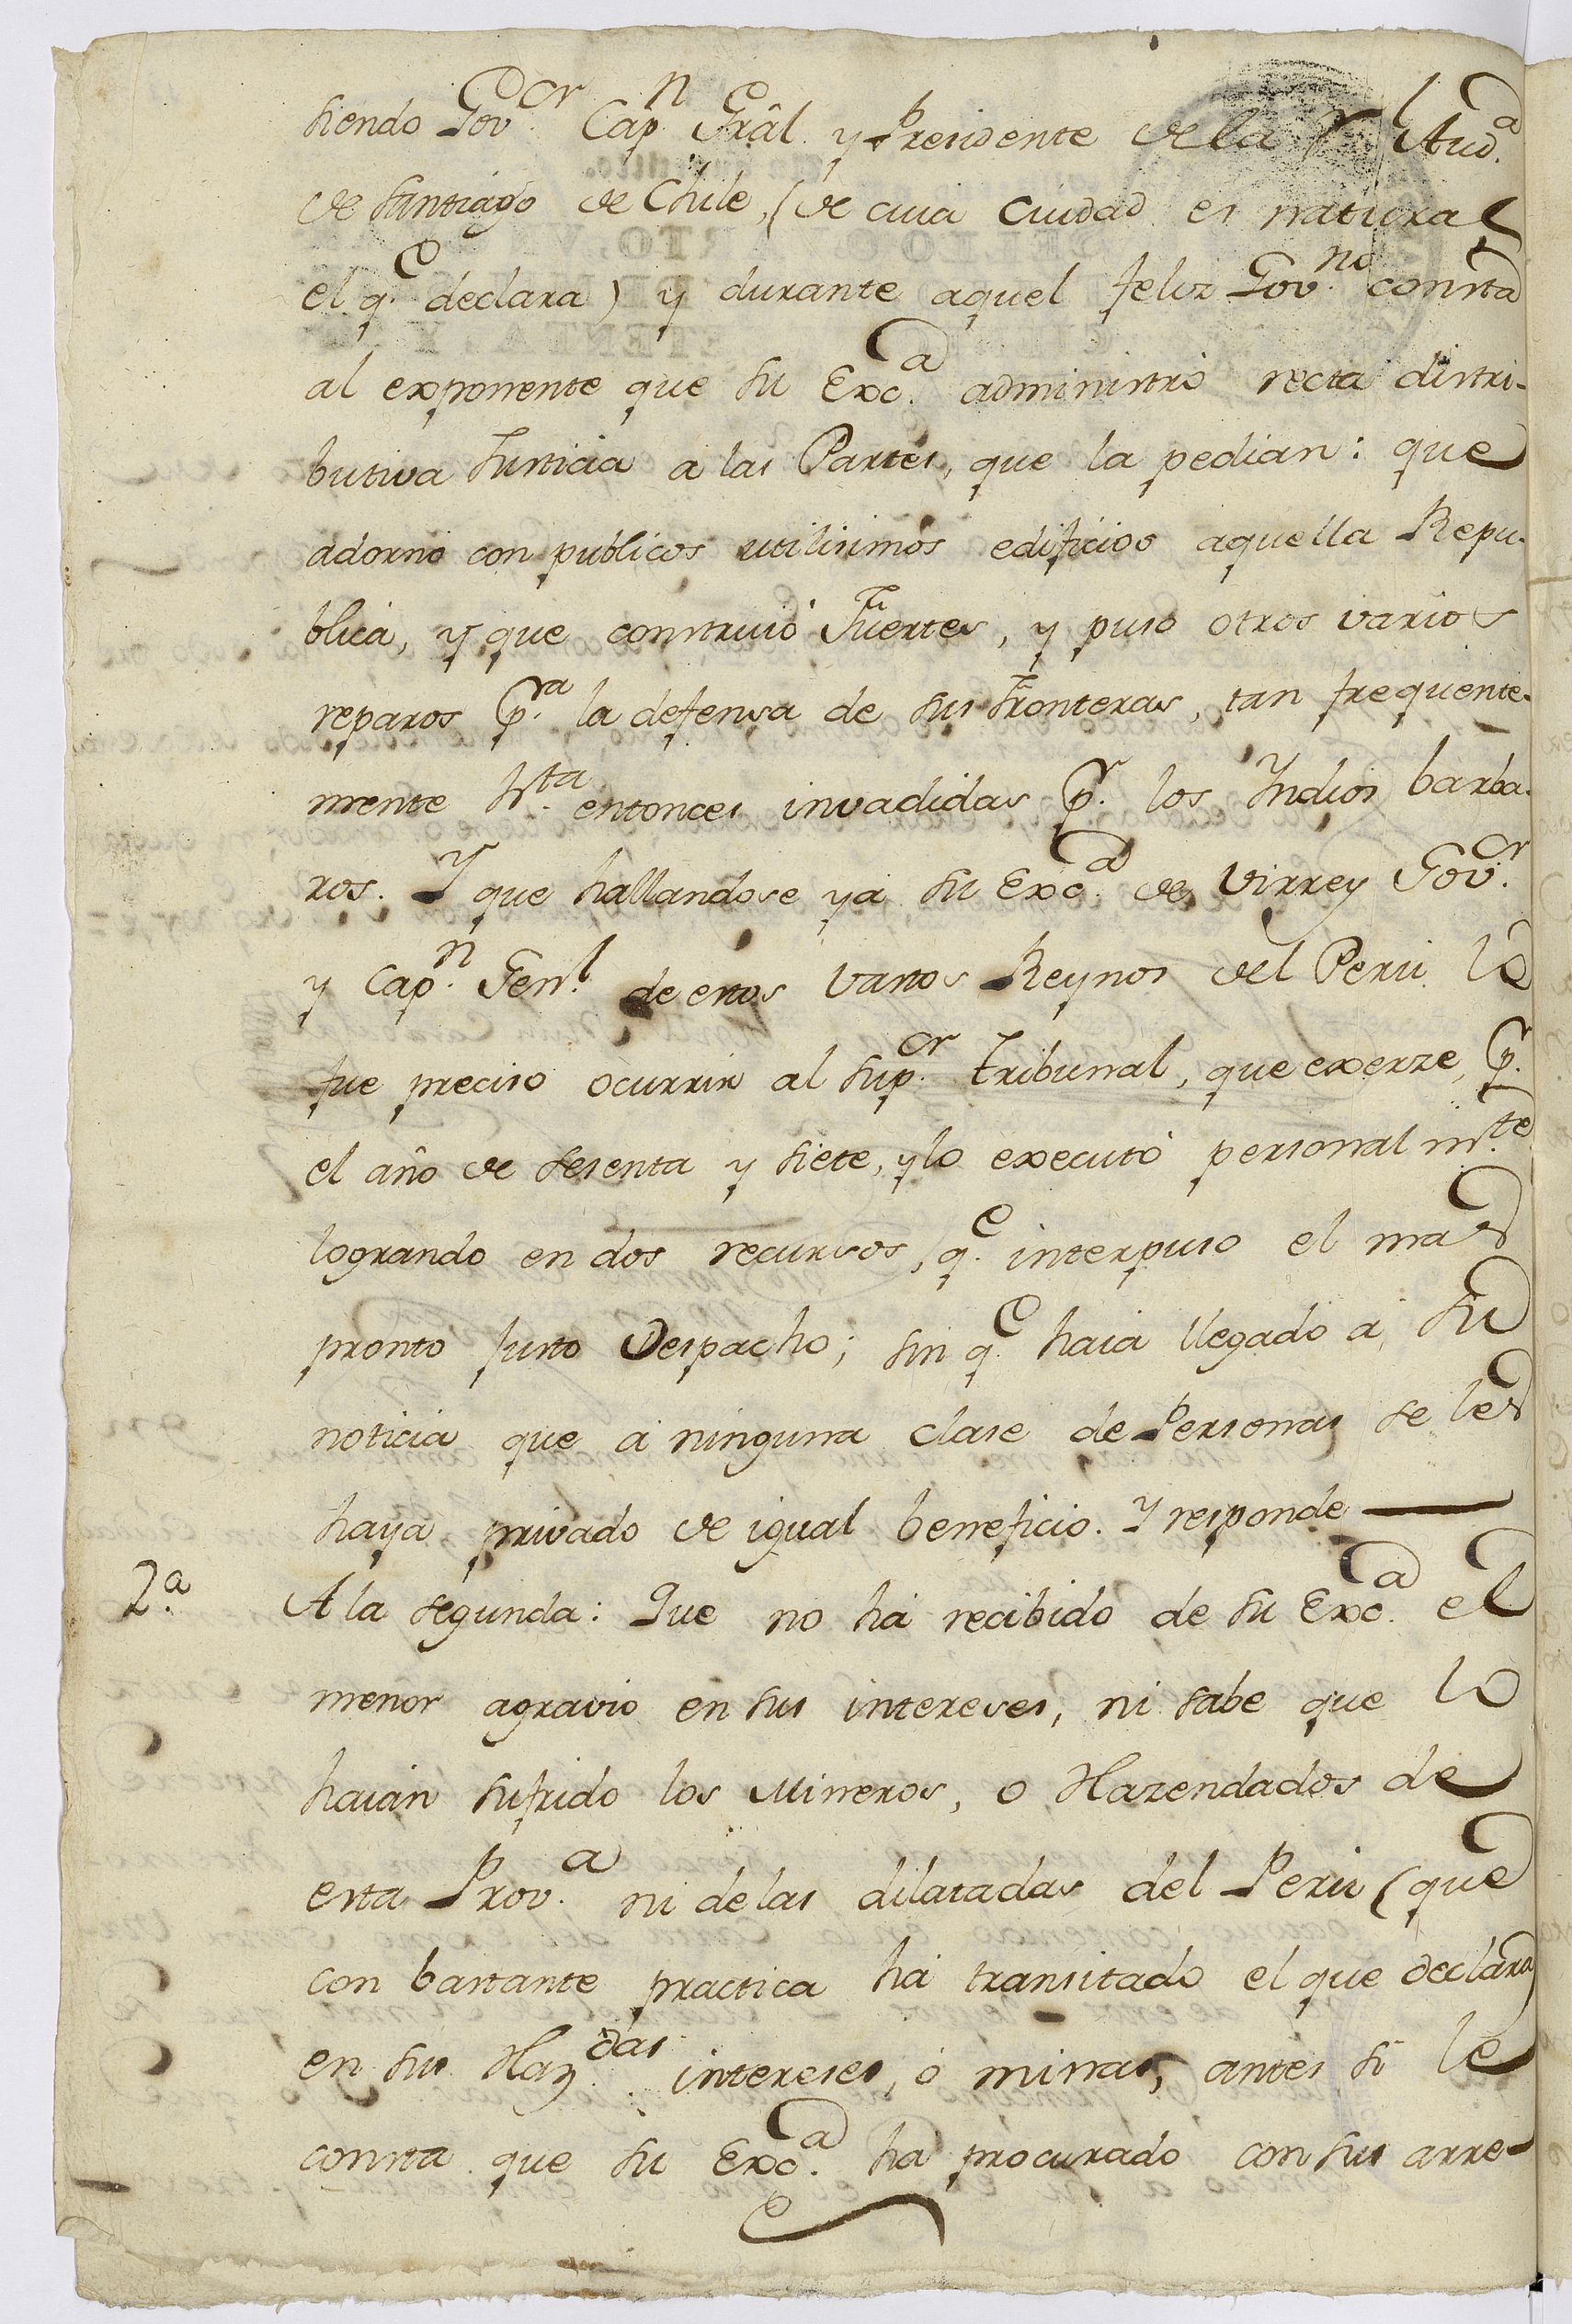 siendo Gov.or Cap.n Grâl. y Presidente de la R.l Aud.a
de Santiago de Chile, (de cuia Ciudad es natural
el q.e declara) y durante aquel feliz Gov.no consta
al exponente que su Exc.a administró recta distri-
butiva Justicia a las Partes, que la pedian: que
adornó con publicos utilisimos edificios aquella Repu-
blica, y que construió Fuertes, y puso otros varios
reparos p.ra la defensa de sus Fronteras, tan frequente-
mente h.ta entonces invadidas p.r los Indios barba-
ros. Y que hallandose ya su Exc.a de Virrey Gov.or
y Cap.n Gen.l de estos vastos Reynos del Perú le
fue preciso ocurrir al sup.or Tribunal, que exerze, p.r
el año de sesenta y siete, y lo executó personalm.te
logrando en dos recursos, q.e interpuso el mas
pronto justo Despacho; sin q.e haia llegado á su
noticia que á ninguna clase de Personas se les
haya privado de igual beneficio. Y responde —
2.a A la segunda: Que no há recibido de su Exc.a el
menor agravio en sus intereses, ni sabe que lo
haian sufrido los Mineros, o Hazendados de
esta Prov.a ni de las dilatadas del Perú (que
con bastante practica há transitado el que declara)
en sus Haz.das intereses, ó minas, antes si le
consta que su Exc.a ha procurado con sus arre-